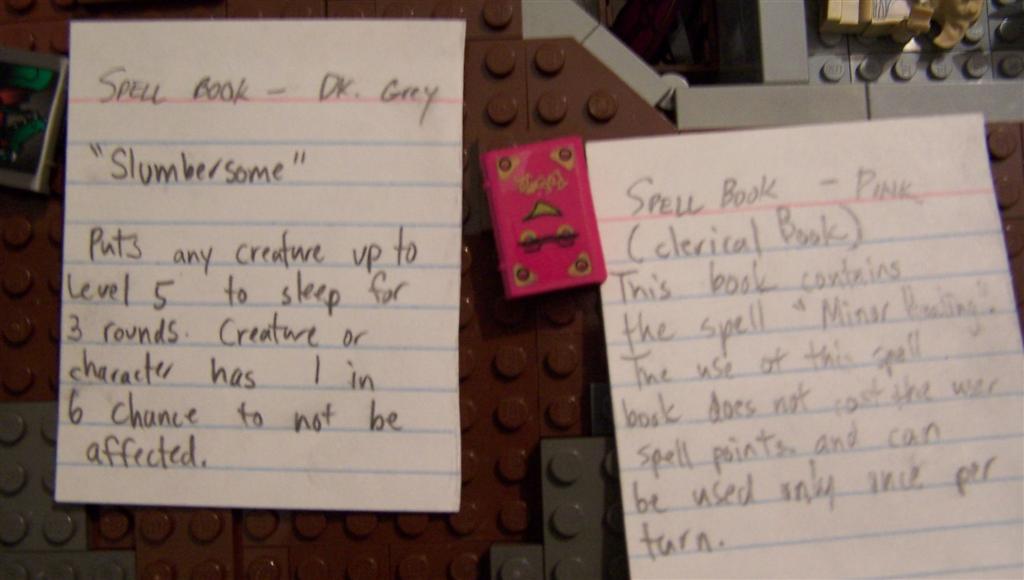 SPELL BOOK - DK. Grey
"Slumbersome"
Puts any creature up to
Level 5 to sleep for
3 rounds. Creature or
character has 1 in
6 chance to not be
affected.
SPELL BOOK - PINK
(clerical Book)
This book contains
the spell "Minor Healing".
The use of this spell
book does not cost the user
spell points and can
be used only once per
turn.